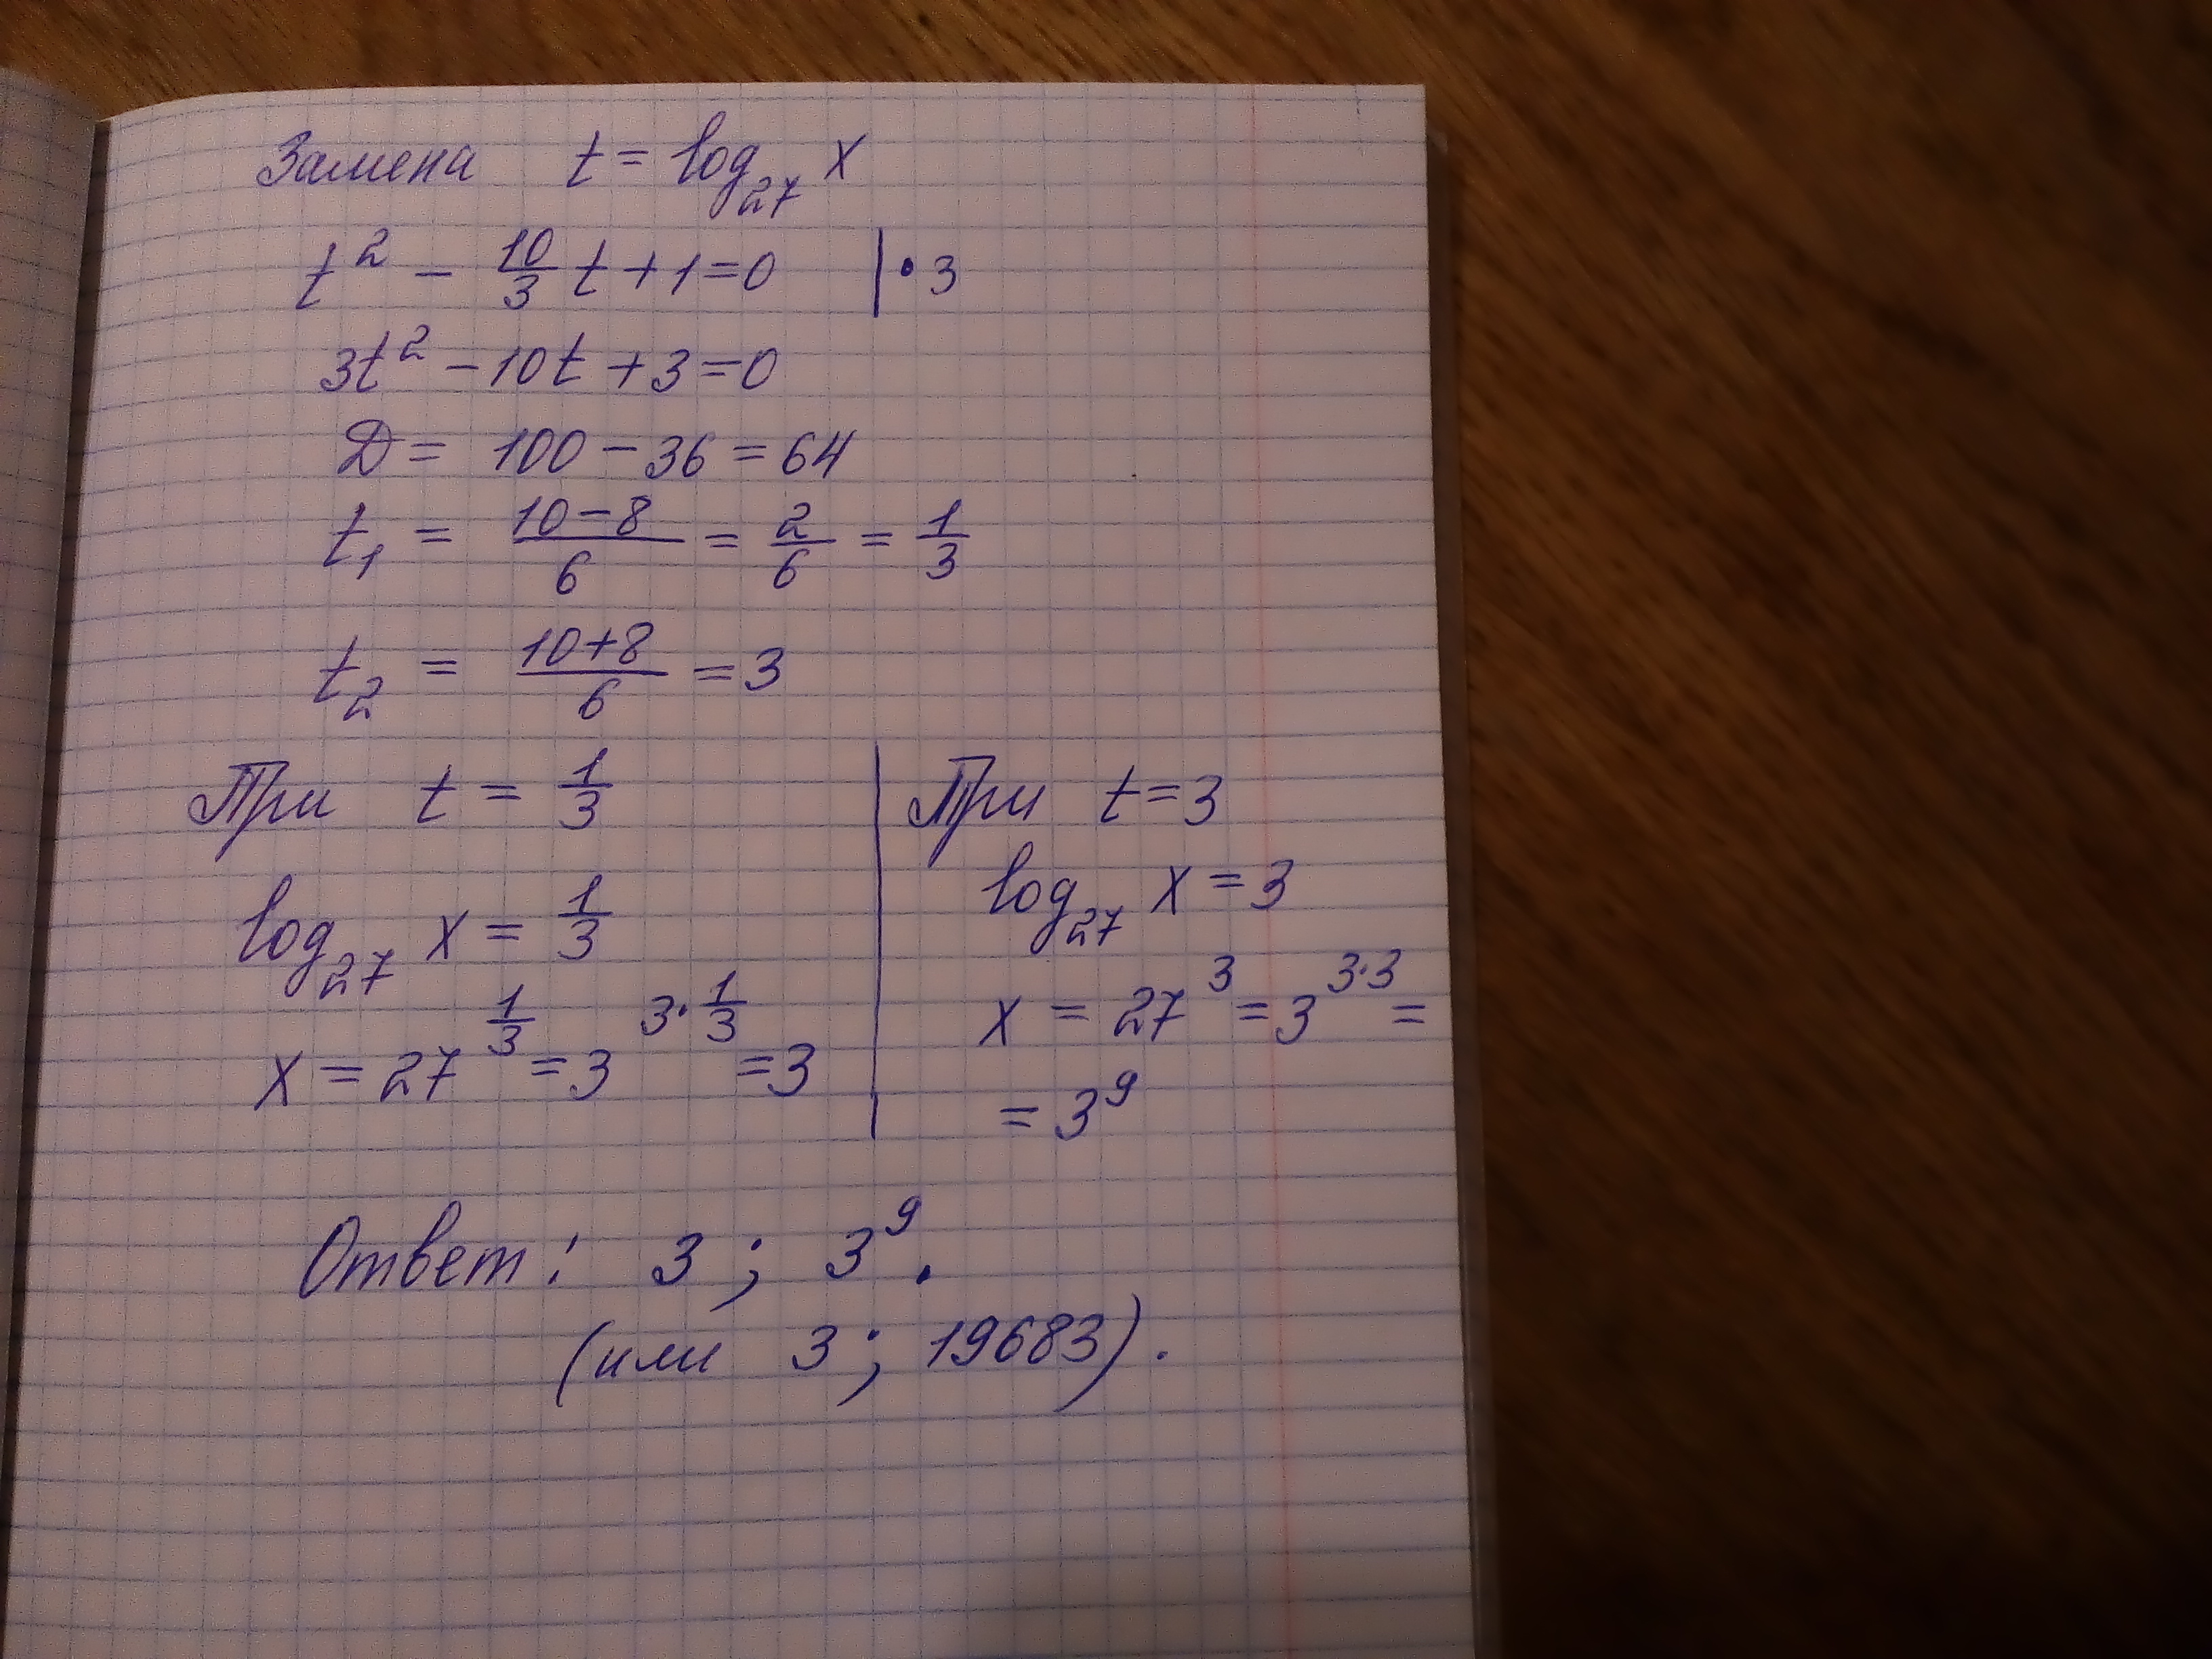 Замена t = log₂₇ x
t² - 10/3 t + 1 = 0 | · 3
3t² - 10t + 3 = 0
D = 100 - 36 = 64
t₁ = (10-8)/6 = 2/6 = 1/3
t₂ = (10+8)/6 = 3
При t = 1/3
log₂₇ x = 1/3
x = 27^(1/3) = 3^(3·1/3) = 3
При t = 3
log₂₇ x = 3
x = 27³ = 3^(3·3) =
= 3⁹
Ответ: 3; 3⁹.
(или 3; 19683).